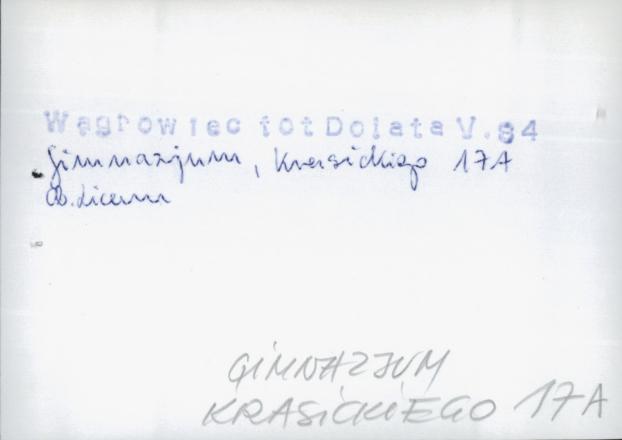 Wągrowiec fot Dolata V.84
Gimnazjum, Krasickiego 17A
Ob. Liceum
GIMNAZJUM
KRASICKIEGO 17A